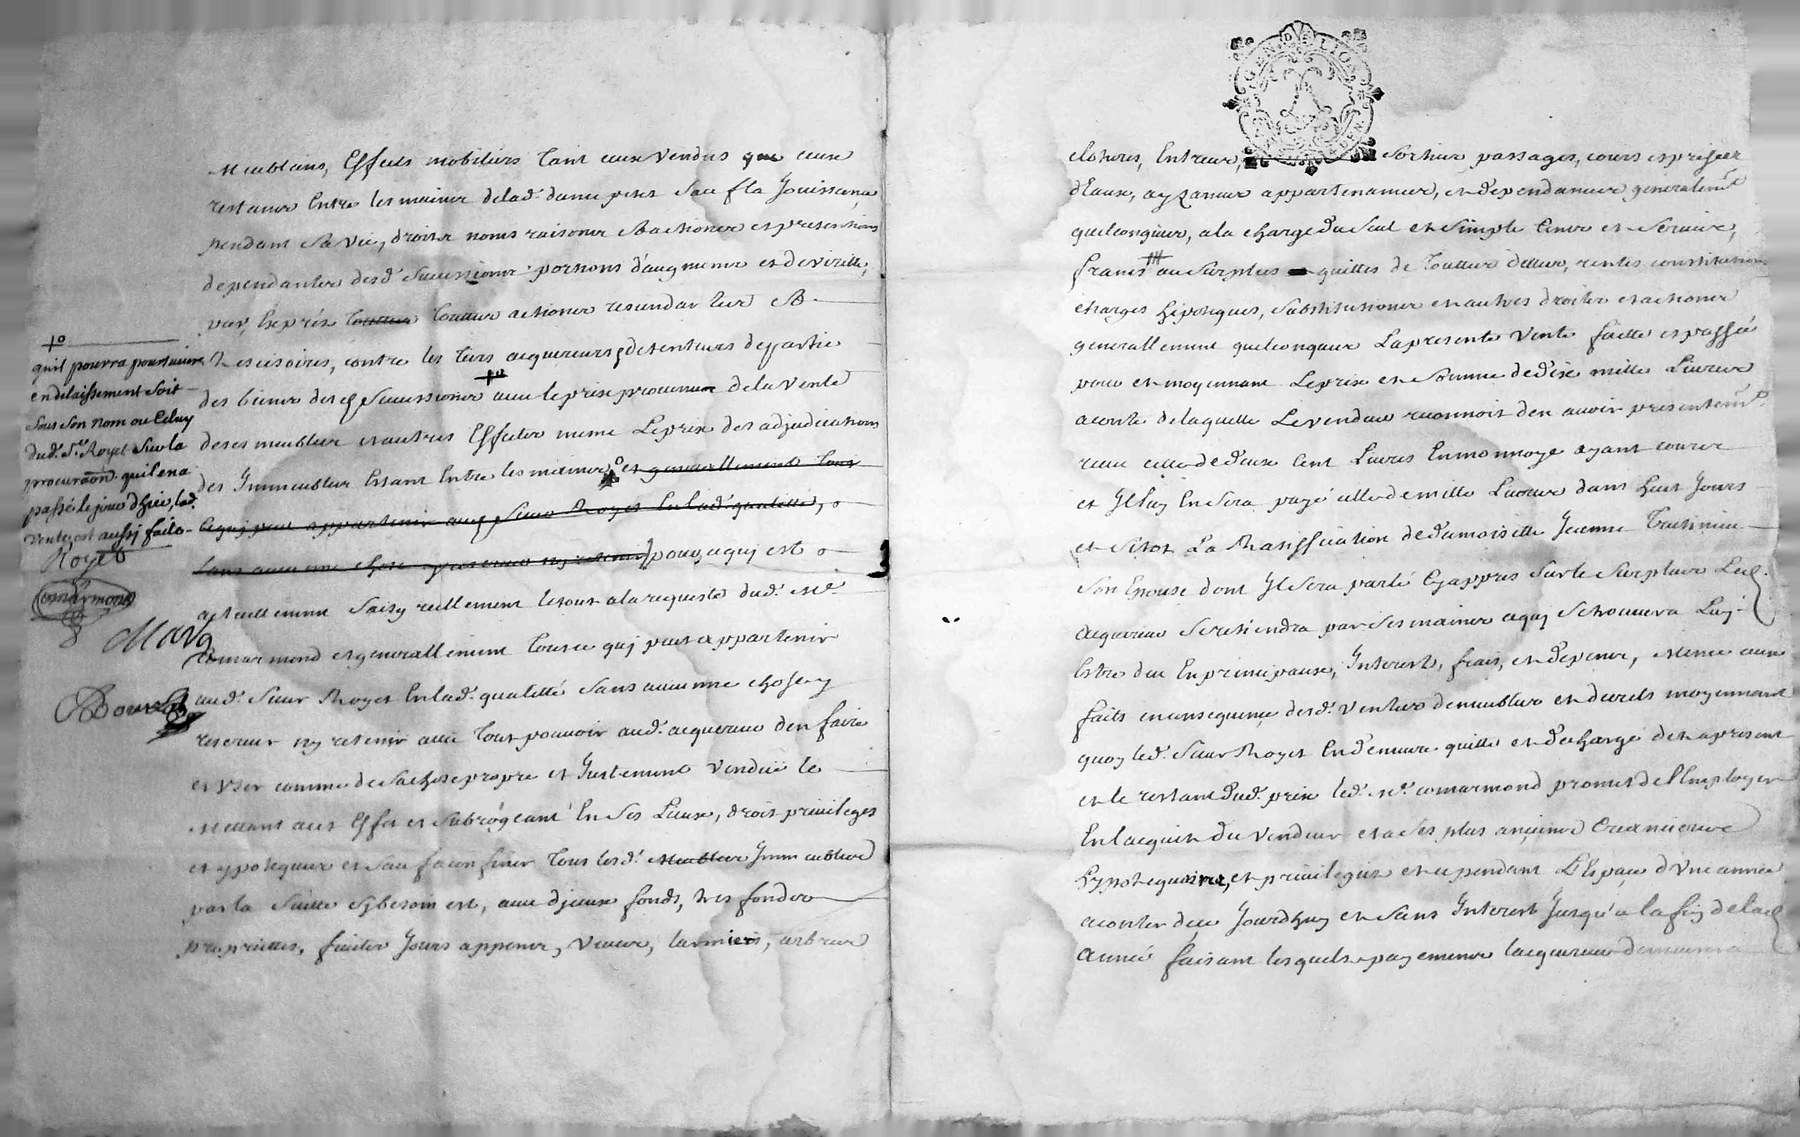 Meublans, Effects mobiliers tant ceux vendus que ceux
restans Entre les mains de lad.^e dame petet Sauf la Jouissance
pendant sa vie, droits noms raisons & actions et pretentions
dependantes desd.^s Successions portions d'augmens et de virille,
par Exprès toutes toutes actions rescindantes &
Rescisoires, contre les tiers acquereurs, detenteurs de partie
des biens desd Successions avec le prix provenant de la vente
deses meubles et autres Effects meme Le prix des adjudications
des Immeubles Estant Entre les mains, et generallement tout
ce qui peut appartenir aud Sieur Royet En lad.^e qualitté,
sans aucunne chose y reserver ny retenir pour ce qui est
actuellement saisy reellement le tout a la requeste dud.^t M.^e
Comarmond et generallement tout ce qui peut appartenir
aud.^t Sieur Royet En lad.^e qualitté sans aucunne chose y
reserver ny retenir avec tout pouvoir aud.^t acquereur den faire
et User comme de sa chose propre et Justement Vendüe le
Mettant a cet Effet et Subrogeant En Ses Lieux, droit privileges
et ypoteques et Sauf a confiner tous lesd.^s Meubles Immeubles
par la Suitte sy besoin est, avec d'jceux fonds, tres fonds
proprietés, fruits Jours appens, Vues, larmiers, arbres
+o
quil pourra poursuivre
en delaissement soit
sous son nom ou Celuy
dud.^t S.^r Royet Sur la
procuraõn quil en a
passé le jour d'hier, lad.^e
vente est aussy faite
Royet
Comarmond
GEN. DE LION
clotures, Entrees, Sorties, passages, cours et prises
d'Eaux, ayzances appartenances, et dependances generalem.^t
quelconques, a la charge du Seul et Simple Cens et Servis,
francs au Surplus quittes de touttes dettes, rentes constitutions
charges hipoteques, Substitutions et autres droits et actions
generallement quelconques La presente Vente faitte et passée
pour et moyennant Le prix et Somme de dix mille Livres
a conte de laquelle Le vendeur reconnoit den avoir presentem.^t
receu celle de deux Cent Livres En monnoye ayant cours
et Il luy En Sera payé celle de mille Livres dans huit Jours
et Sitot La Ratiffication de damoiselle Jeanne
Son Epouse dont Il Sera parlé Cy appres Sur le Surplus Led.
acquereur Se retiendra par Ses mains ce qui Se trouvera Luy
Estre deu En principaux, Interest, frais, et depens, Meme ceux
faits en consequence desd.^s Ventes de meubles et dettes moyennant
quoy led.^t Sieur Royet En demeure quitte et dechargé des a present
et le restant dud.^t prix led.^t M.^e Comarmond promet de l'Employer
En l'acquit du Vendeur et a Ses plus anciens Creanciers
hypotequaires, et privilegiés et cependant L'Espace d'Une année
a conter de ce Jourdhuy et Sans Interest Jusqu'a la fin de lad
Année faisant lesquels payemens lacquereur demeurera